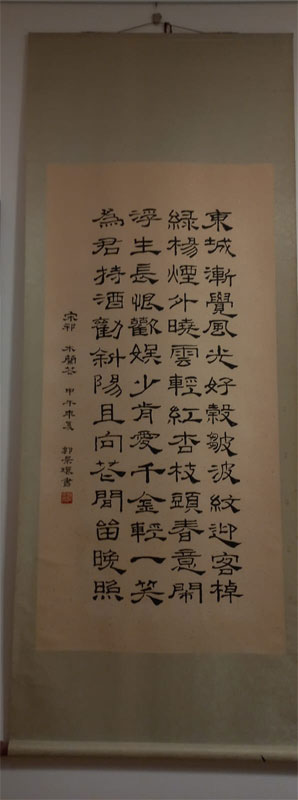 東城漸覺風光好縠皺波紋迎客棹
綠楊煙外曉雲輕紅杏枝頭春意鬧
浮生長恨歡娛少肯愛千金輕一笑
為君持酒勸斜陽且向花間留晚照
宋祁 木蘭花 甲午末夏 郭 書